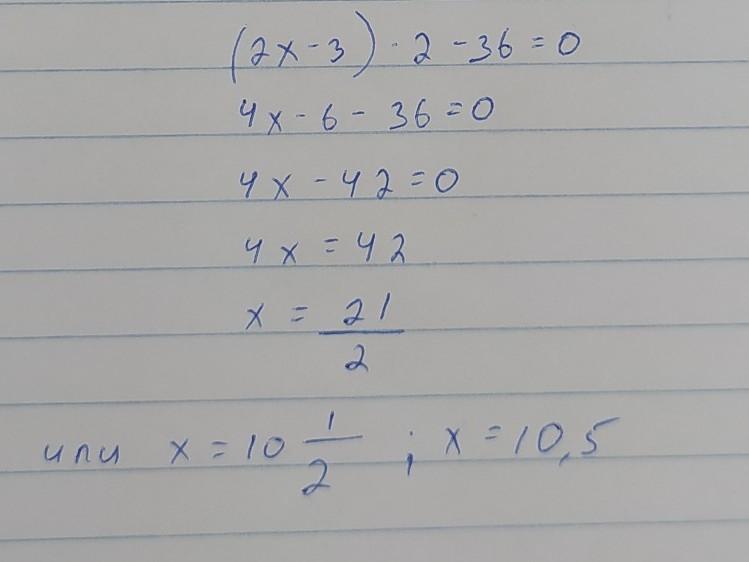 (2x-3)·2-36=0
4x-6-36=0
4x-42=0
4x=42
x=21/2
или x=10 1/2; x=10,5